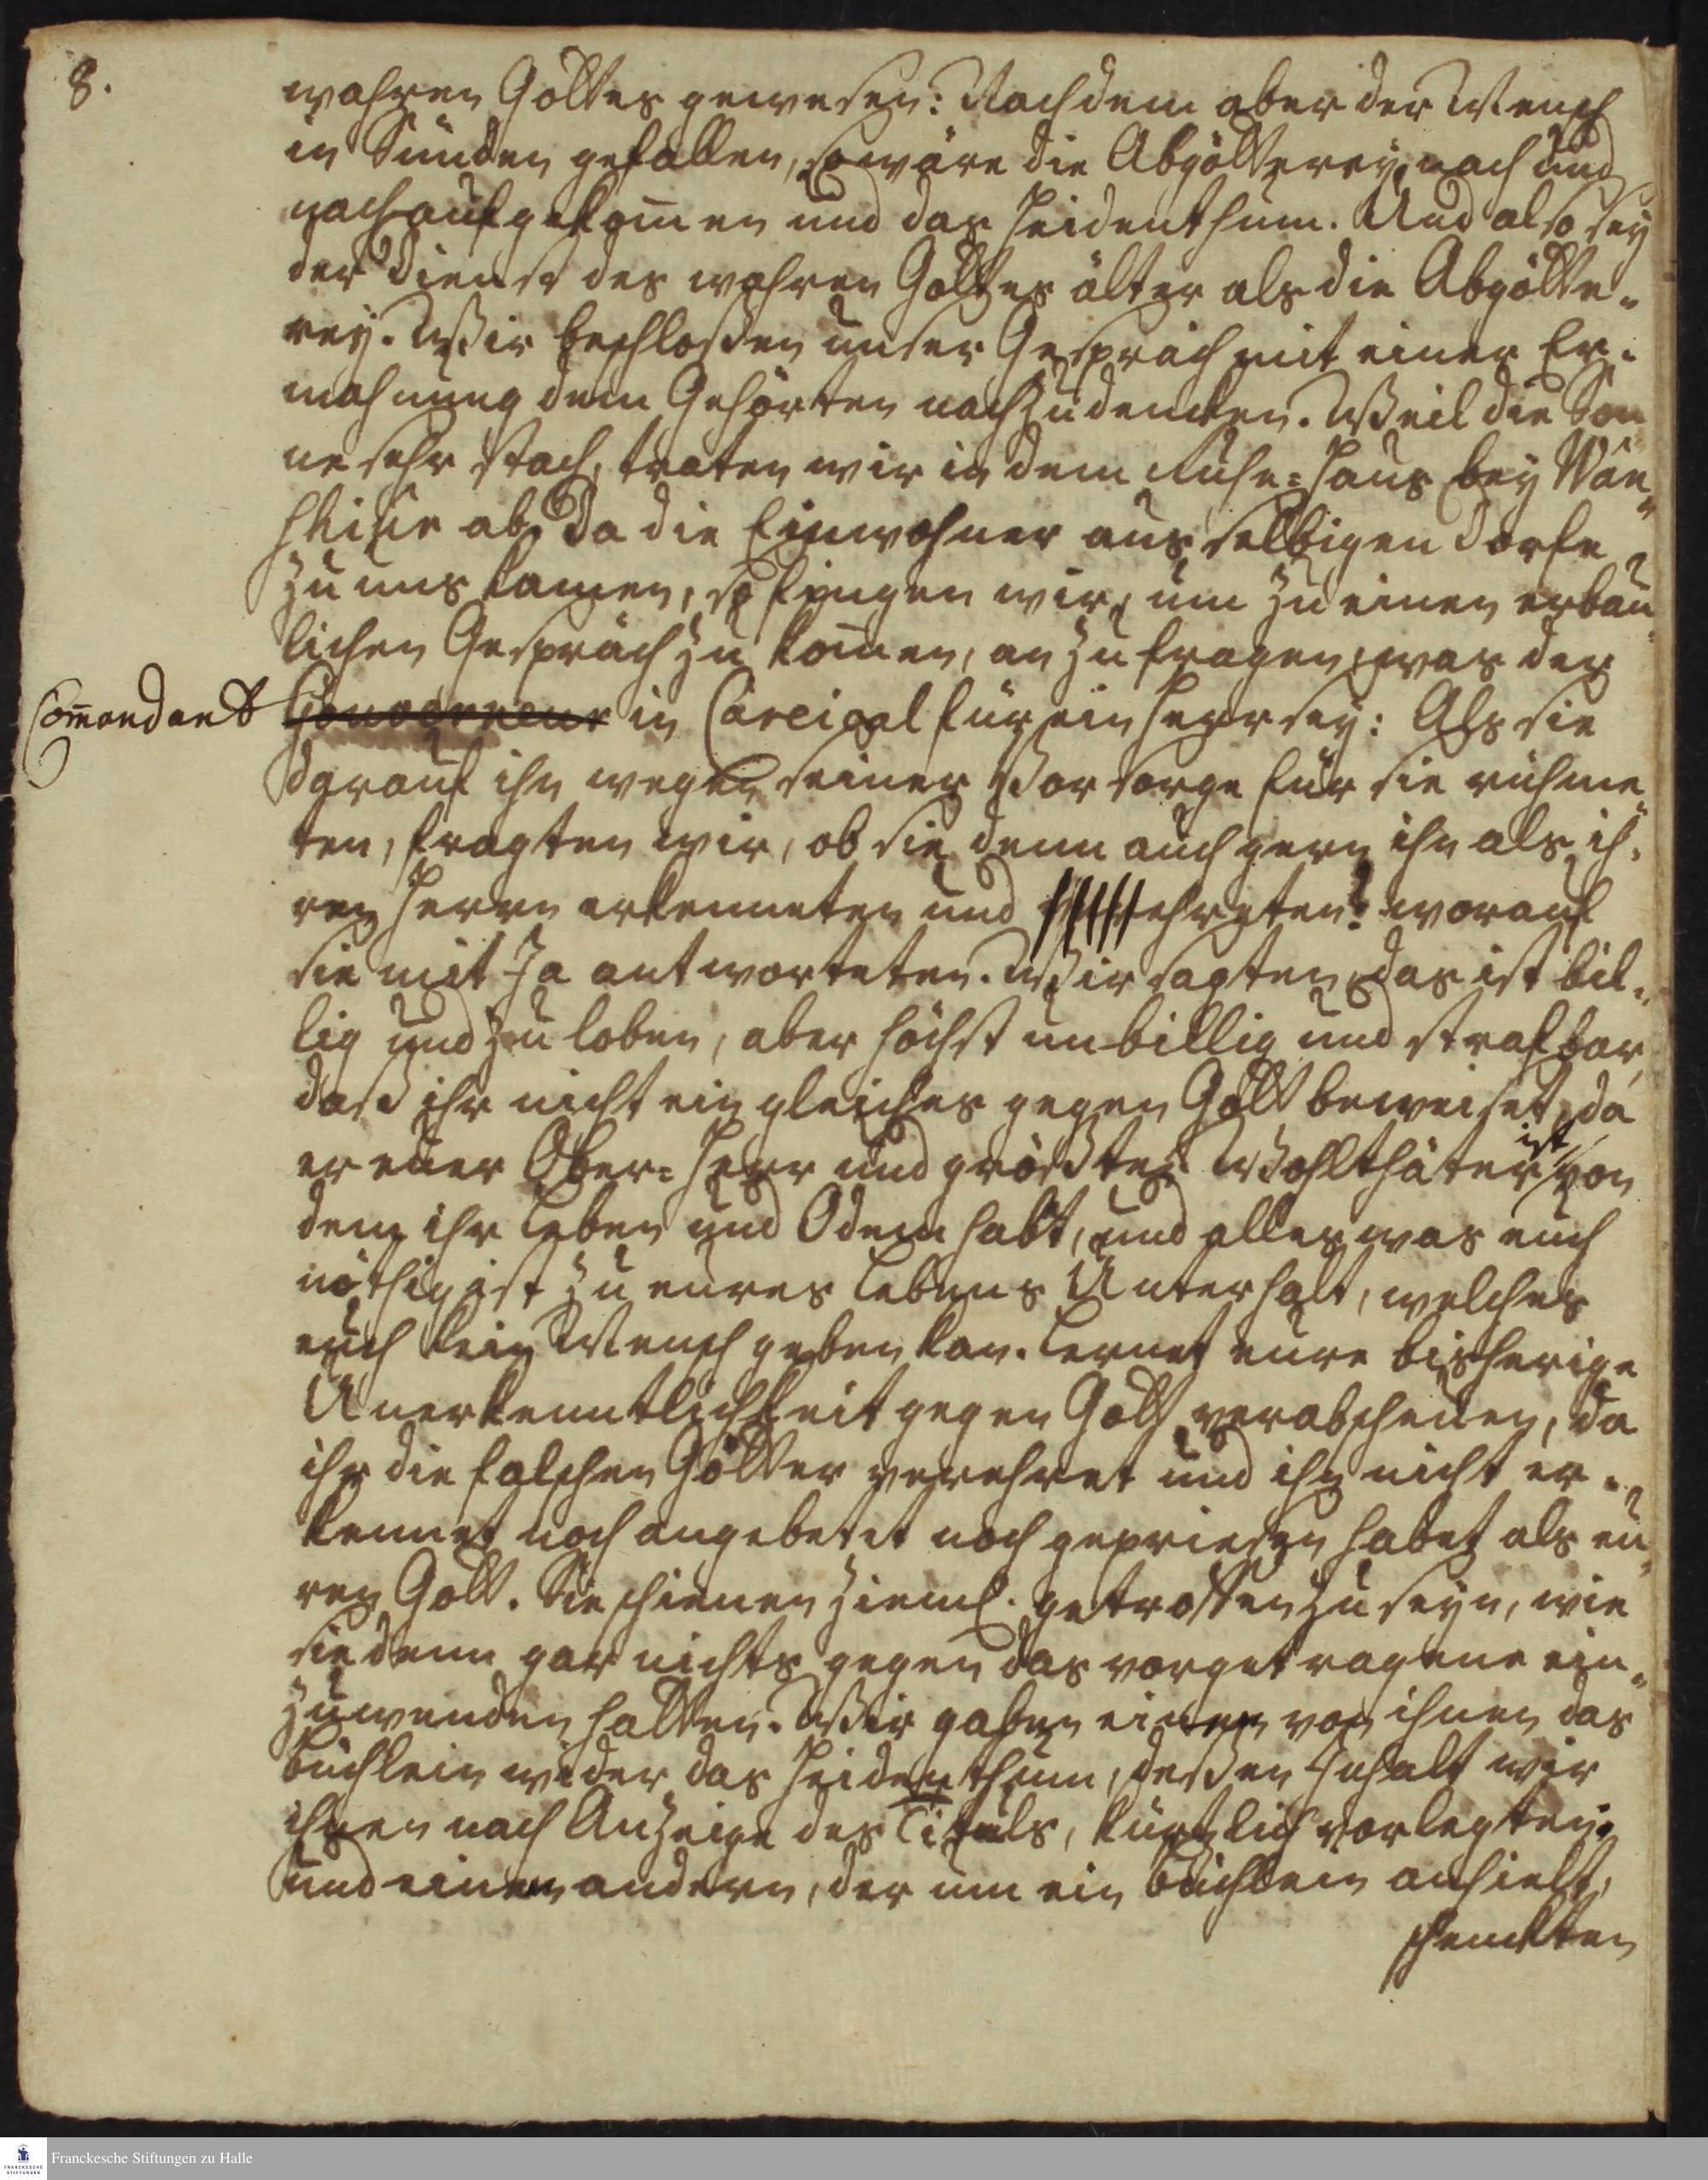 8.
wahren Gottes gewesen: Nachdem aber der Mensch
in Sünden gefallen, so wäre die Abgötterey nach und
nach aufgekom̅en und das Heidenthum. Und also sey
der Dienst des wahren Gottes älter als die Abgötte-
rey. Wir beschloßen unser Gespräch mit einer Er-
mahnung dem Gehörten nachzudencken. Weil die Son
ne sehr stach, traten wir in dem Ruhe-Haus bey
ab. Da die Einwohner aus selbigen Dorfe
zu uns kamen, so fingen wir, um zu einen erbau
lichen Gespräch zu kom̅en, an zu fragen, was der
Com̅endant Gouverneur in Careical für ein Herr sey: Als sie
darauf ihn wegen seiner Vorsorge für sie rühme
ten, fragten wir, ob sie denn auch gern ihn als ih-
ren Herrn erkenneten und ehreten? worauf
sie mit Ja antworteten. Wir sagten, das ist bil-
lig und zu loben, aber höchst unbillig und strafbar,
daß ihr nicht ein gleiches gegen Gott beweiset, da
er euer Ober-Herr und größter Wohlthäter ist, von
dem ihr Leben und Odem habt, und alles was euch
nöthig ist zu eures Lebens Unterhalt, welches
euch kein Mensch geben kan. Lernet eure bisherige
Unerkenntlichkeit gegen Gott verabscheuen, da
ihr die falschen Götter verehret und ihn nicht er-
kennet noch angebetet noch gepriesen habet als eu
ren Gott. Sie schienen zieml. getroffen zu seyn, wie
sie denn gar nichts gegen das vorgetragene ein-
zuwenden hatten. Wir gaben einen von ihnen das
Büchlein wider das Heidenthum, deßen Inhalt wir
ihnen nach Anzeige des Tituls, kürtzlich vorlegten,
und einen andern, der um ein Büchlein anhielt,
schenckten
Franckesche Stiftungen zu Halle
FRANCKESCHE
STIFTUNGEN